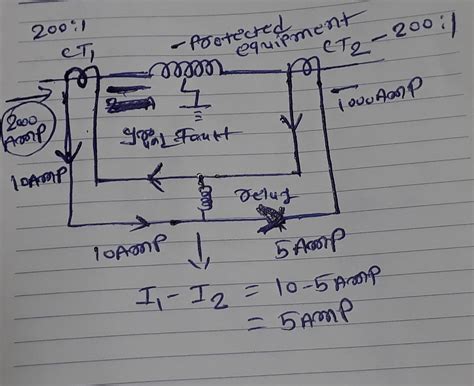 200:1
CT1
- Protected equipment
CT2 - 200:1
2000 AMP
1000AMP
fault
10AMP
relay
10AMP
5AMP
I1 - I2 = 10-5AMP
= 5AMP